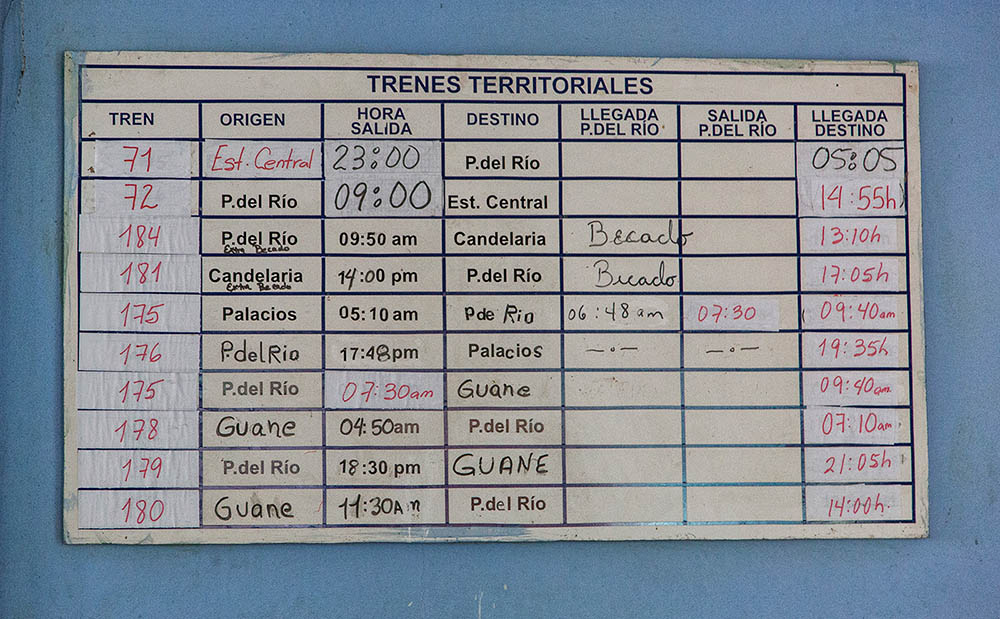 TRENES TERRITORIALES
TREN ORIGEN HORA SALIDA DESTINO LLEGADA P.DEL RÍO SALIDA P.DEL RÍO LLEGADA DESTINO
71 Est. Central 23:00 P.del Río 05:05
72 P.del Río 09:00 Est. Central 14:55h
184 P.del Río Extra Becado 09:50 am Candelaria Becado 13:10h
181 Candelaria Extra Becado 14:00 pm P.del Río Becado 17:05h
175 Palacios 05:10 am P de Rio 06:48 am 07:30 09:40am
176 P.del Rio 17:48pm Palacios —·— —·— 19:35h
175 P.del Río 07:30am Guane 09:40am
178 Guane 04:50am P.del Río 07:10am
179 P.del Río 18:30 pm GUANE 21:05h
180 Guane 11:30Am P.del Río 14:00h.